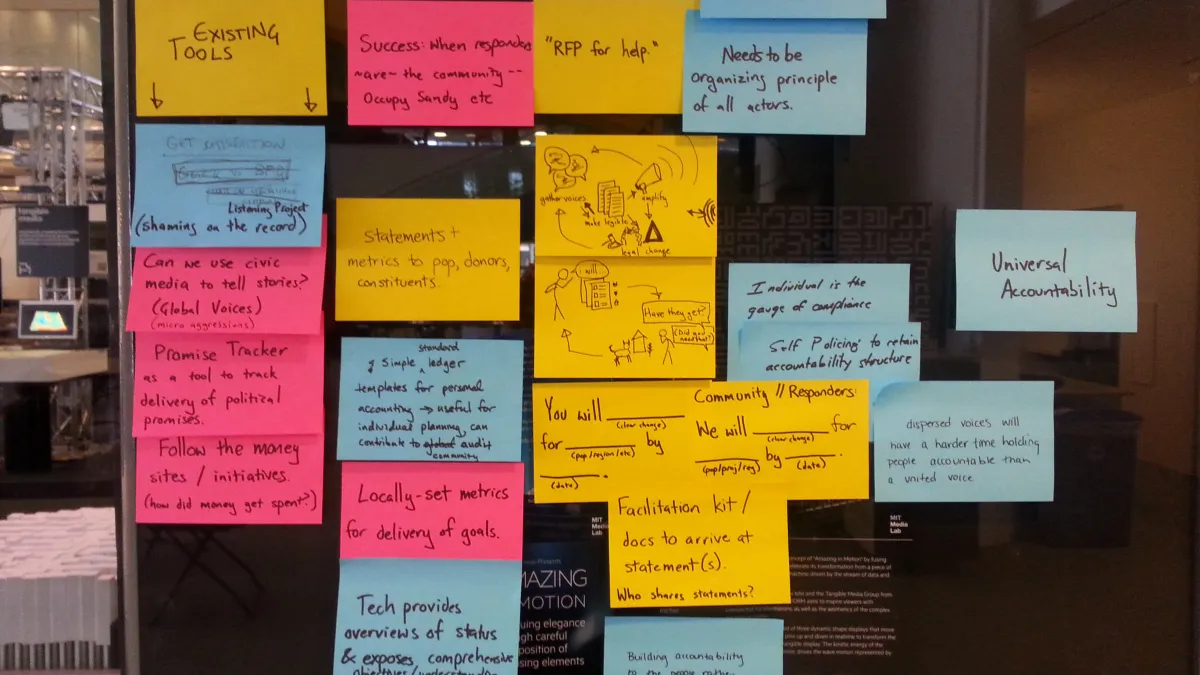 EXISTING
TOOLS
GET
Listening Project
(shaming on the record)
Can we use civic
media to tell stories?
(Global Voices)
(micro aggressions)
Promise Tracker
as a tool to track
delivery of political
promises.
Follow the money
sites / initiatives.
(how did money get spent?)
Success: When responders
~are~ the community --
Occupy Sandy etc
Statements +
metrics to pop, donors,
constituents.
standard
Simple ledger
templates for personal
accounting → useful for
individual planning, can
contribute to global audit
community
Locally-set metrics
for delivery of goals.
Tech provides
overviews of status
& exposes comprehensive
"RFP for help."
gather voices
make legible
amplify
legal change
I will
Have they yet?
(Did god need that?)
You will ______
(clear change)
for ______ by
(pop/region/etc)
______.
(date)
Community // Responders:
We will ______ for
(clear change)
______ by ______.
(pop/proj/reg) (date)
Facilitation kit /
docs to arrive at
statement(s).
Who shares statements?
Building accountability
to the people rather
Needs to be
organizing principle
of all actors.
Individual is the
gauge of compliance
Self Policing to retain
accountability structure
dispersed voices will
have a harder time holding
people accountable than
a united voice
Universal
Accountability
tangible
media
MIT
Media
Lab
MIT
Media
Lab
AMAZING
MOTION